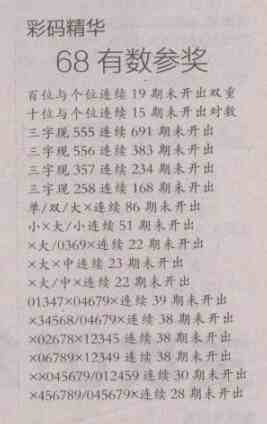 彩码精华
68有数参奖
百位与个位连续19期未开出双重
十位与个位连续15期未开出对数
三字现555连续691期未开出
三字现556连续383期未开出
三字现357连续234期未开出
三字现258连续168期未开出
单/双/大×连续86期未开出
小×大/小连续51期未开出
×大/0369×连续22期未开出
×大×中连续23期未开出
×大/中×连续22期未开出
01347×04679×连续39期未开出
×34568/04679×连续38期未开出
×02678×12345连续38期未开出
×06789×12349连续38期未开出
××045679/012459连续30期未开出
×456789/045679×连续28期未开出